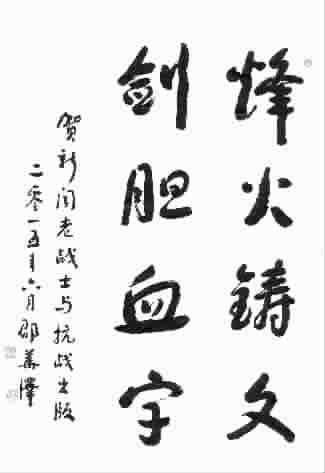 烽火铸文
剑胆血字
贺新闻老战士与抗战出版
二零一五年六月邵华泽